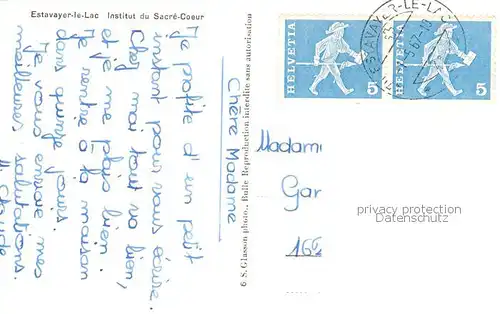 Estavayer-le-Lac Institut du Sacré-Coeur
Chère Madame
Je profite d'un petit
instant pour vous écrire.
Chez moi tout va bien,
et je me plais bien.
Je rentre à la maison
dans quinze jours.
Je vous envoie mes
meilleures salutations.
Claude
6 S. Glasson photo., Bulle Reproduction interdite sans autorisation
ESTAVAYER-LE-LAC
HELVETIA 5
HELVETIA 5
Madam
Gar
privacy protection
Datenschutz